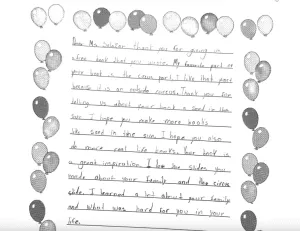 Dear Ms. thank you for giving us
a free book that you wrote. My favorite part of
your book is the circus part. I like that part
because it is an outside circus. Thank you for
telling us about your book a seed in the
sun. I hope you make more books
like seed in the sun. I hope you also
do more real life books. Your book is
a great inspiration. I the slides you
made about your family and the circus
slide. I learned a lot about your family
and what was hard for you in your
life.